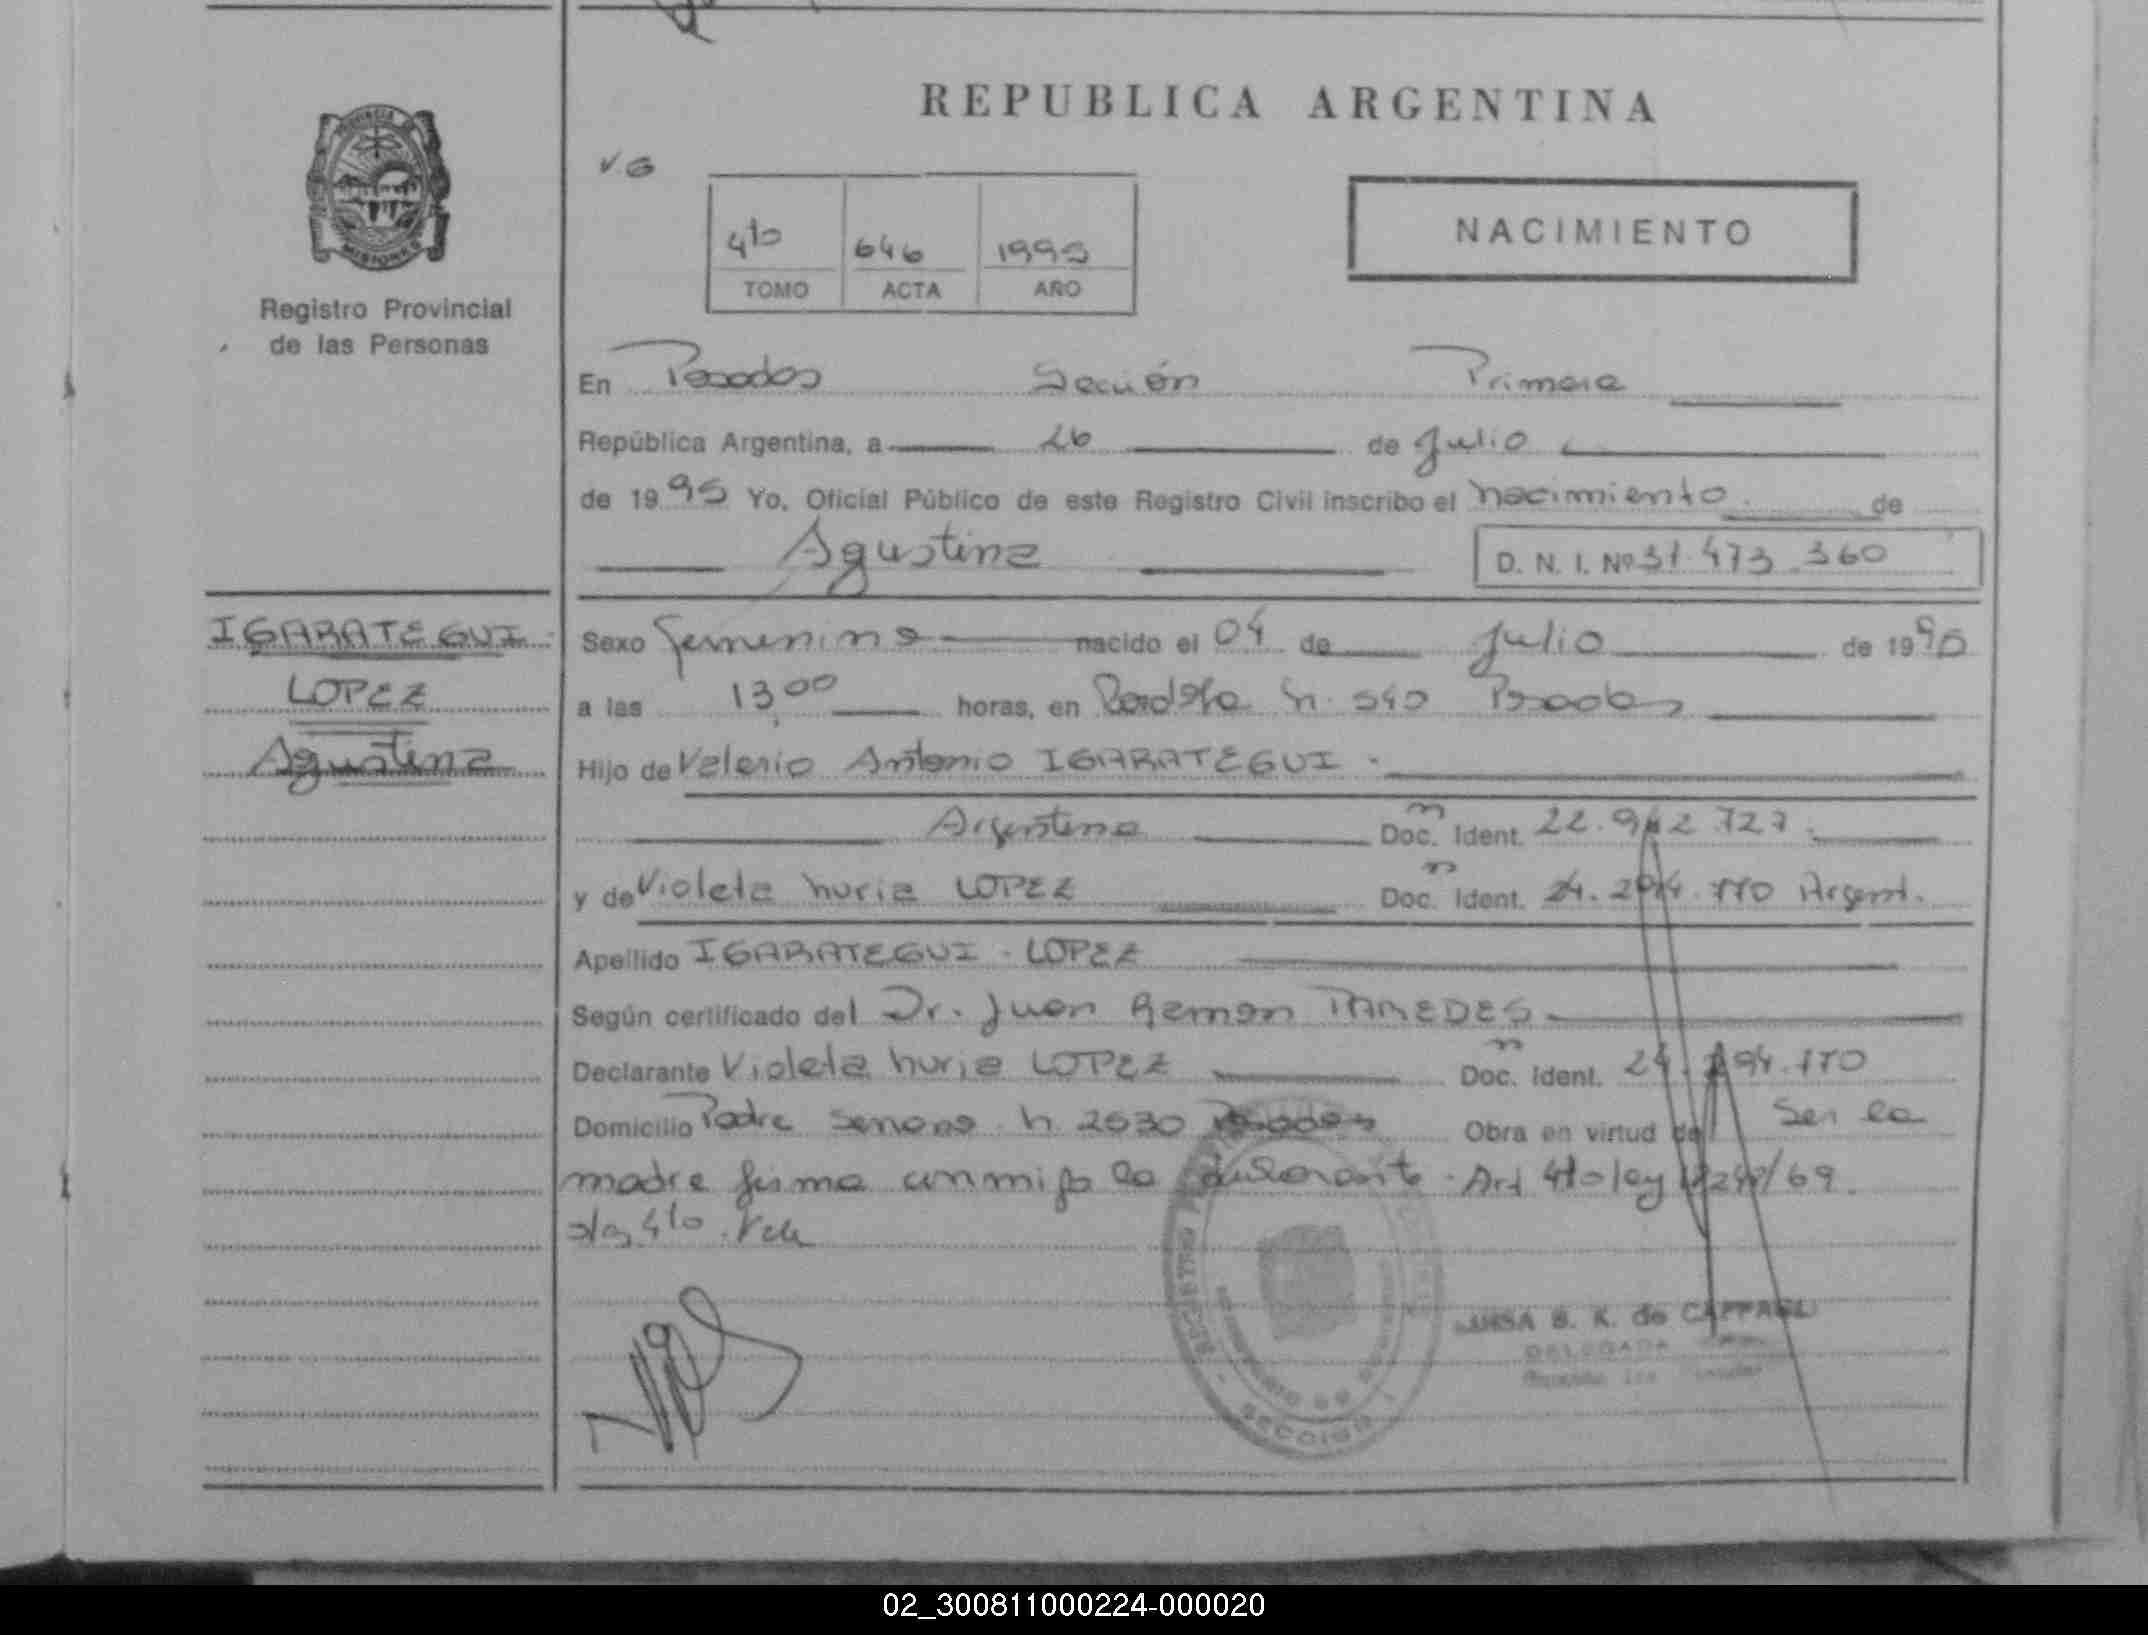 REPUBLICA ARGENTINA
V.G
4to 646 1995
TOMO ACTA AÑO
NACIMIENTO
PROVINCIA DE
MISIONES
Registro Provincial
de las Personas
En Posadas Sección Primera
República Argentina, a 26 de Julio
de 1995 Yo, Oficial Público de este Registro Civil inscribo el nacimiento de
Agustina
D. N. I. Nº 31.473.360
IGARATEGUI
LOPEZ
Agustina
Sexo femenino nacido el 04 de Julio de 1995
a las 13,00 horas, en n. 540 Posadas
Hijo de Valerio Antonio IGARATEGUI
Argentina Doc. Ident. 22.9 2.727
y de Violeta nuria LOPEZ Doc. Ident. 24.294.770 Argent.
Apellido IGARATEGUI - LOPEZ
Según certificado del Dr. Juan Ramon PAREDES
Declarante Violeta nuria LOPEZ Doc. Ident. 24. 294.770
Domicilio Padre Serrano n. 2630 Posadas Obra en virtud de Ser la
madre firma conmigo la declarante. Art 4to ley /69.
4to. Vale
SECCION 1
LUISA B. K. de CAFFARELLI
DELEGADA